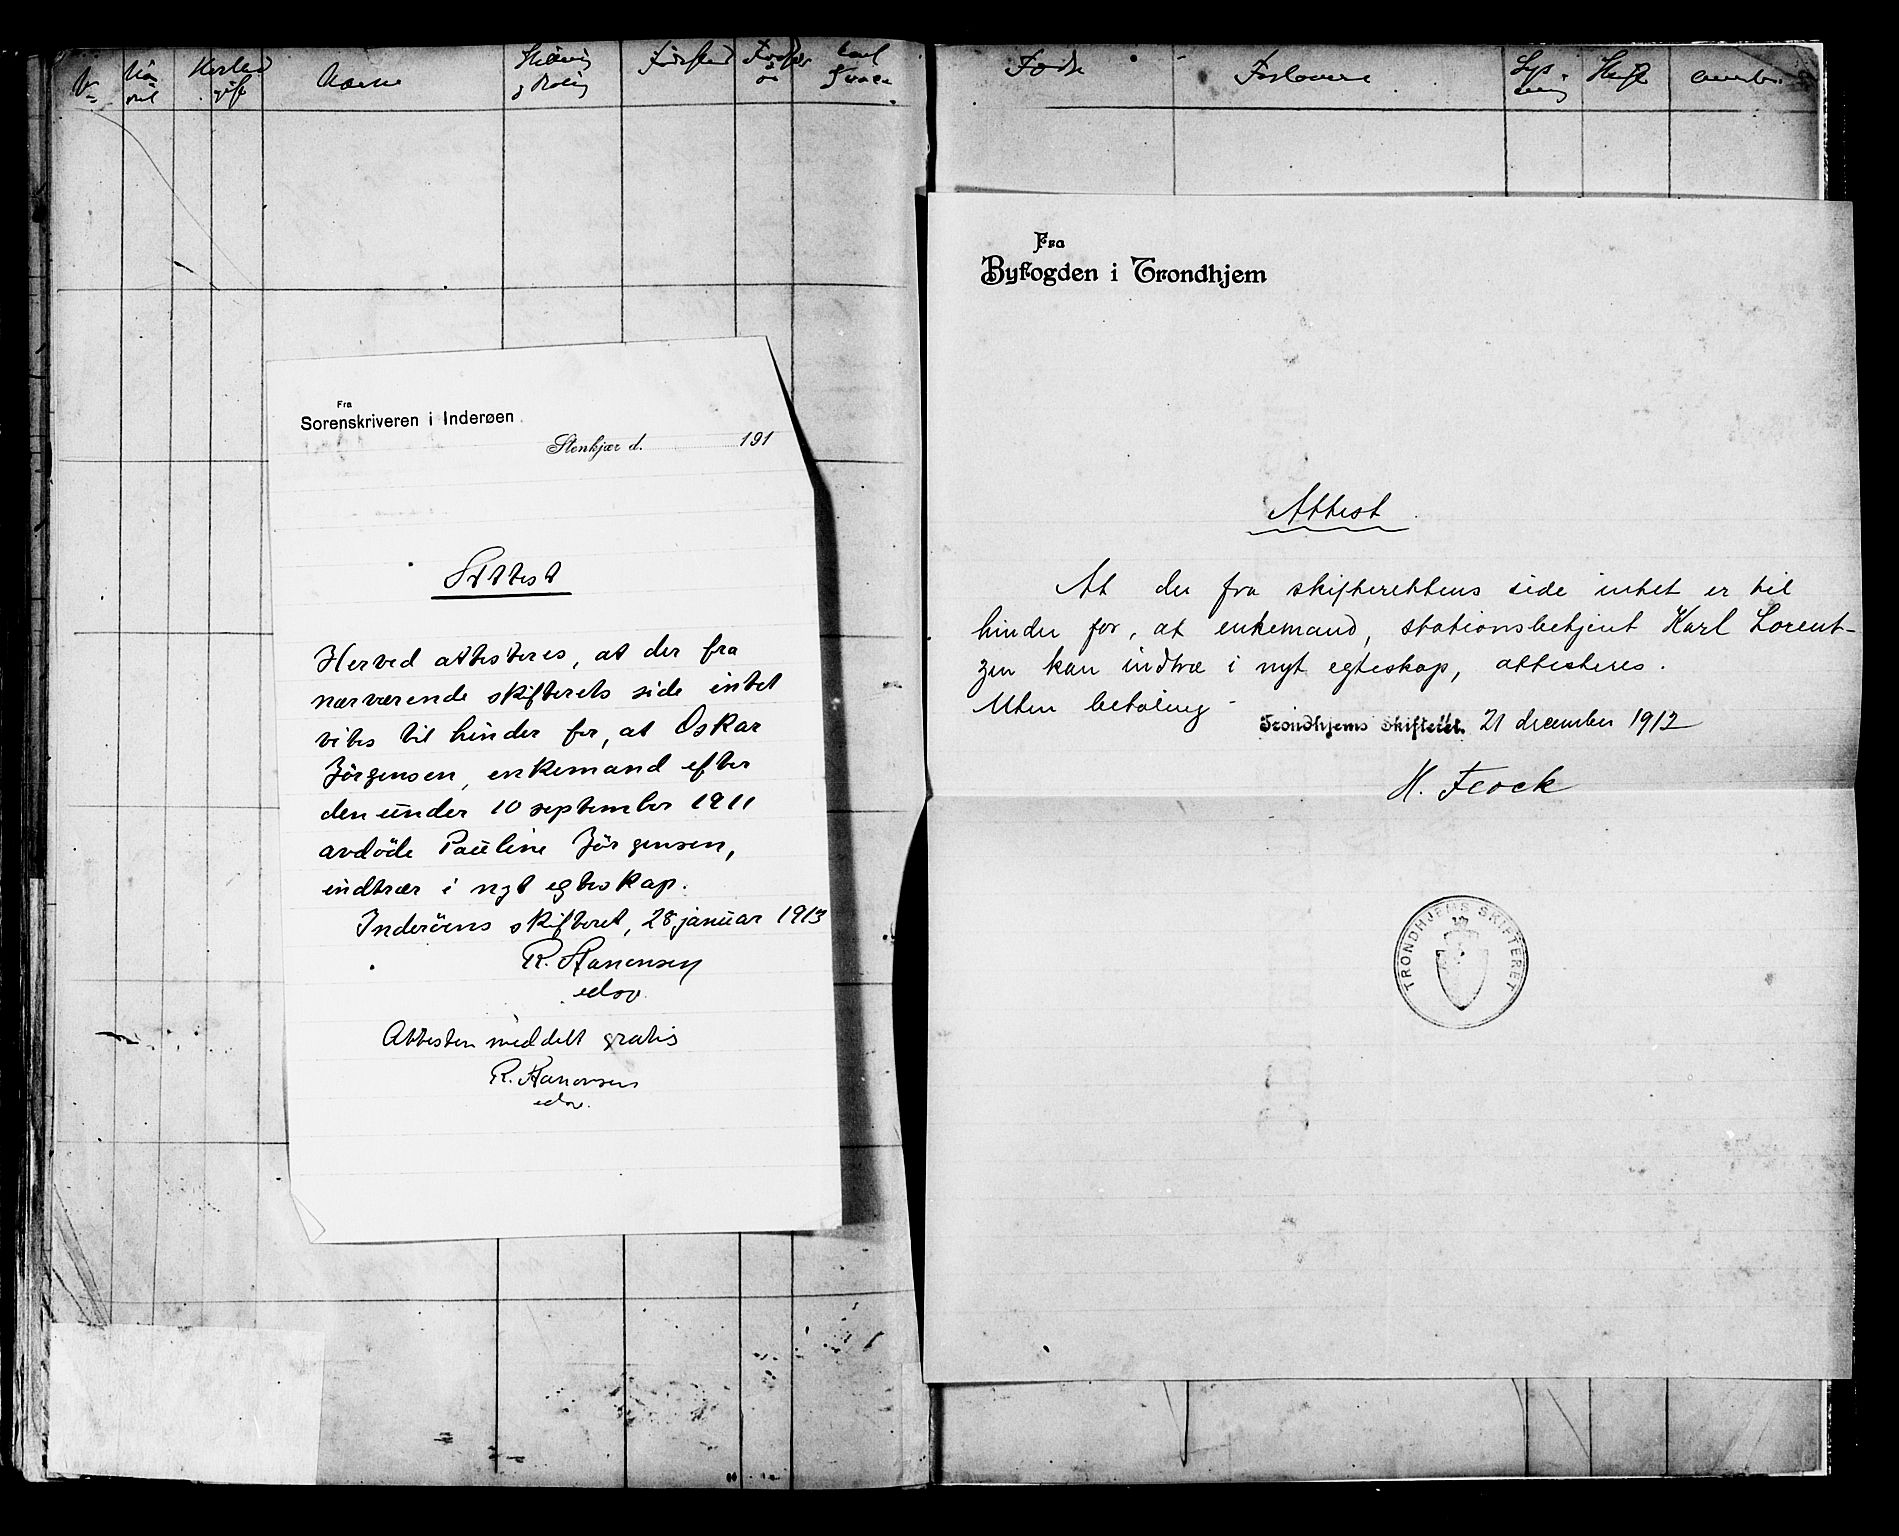 No
Navne
Stilling
Fødested
Fra
Sorenskriveren i Inderøen.
Stenkjær d. 191
Attest
Herved attesteres, at der fra
nærværende skifterets side intet
vites til hinder for, at Oskar
Jörgensen, enkemand efter
den under 10 september 1911
avdöde Pauline Jörgensen,
indtrær i nyt egteskap.
Inderöens skifteret, 28 januar 1913
R. Aanonsen
edsv.
Attesten meddelt gratis
R. Aanonsen
edsv.
Forlovere
Lys
ning
Skift
Fra
Byfogden i Trondhjem
Attest
At der fra skifterettens side intet er til
hinder for, at enkemand, stationsbetjent Karl Lorent-
zen kan indtræ i nyt egteskap, attesteres.
Uten betaling -
Trondhjems Skifteret. 21 december 1912
H. Flock
TRONDHJEMS SKIFTERET